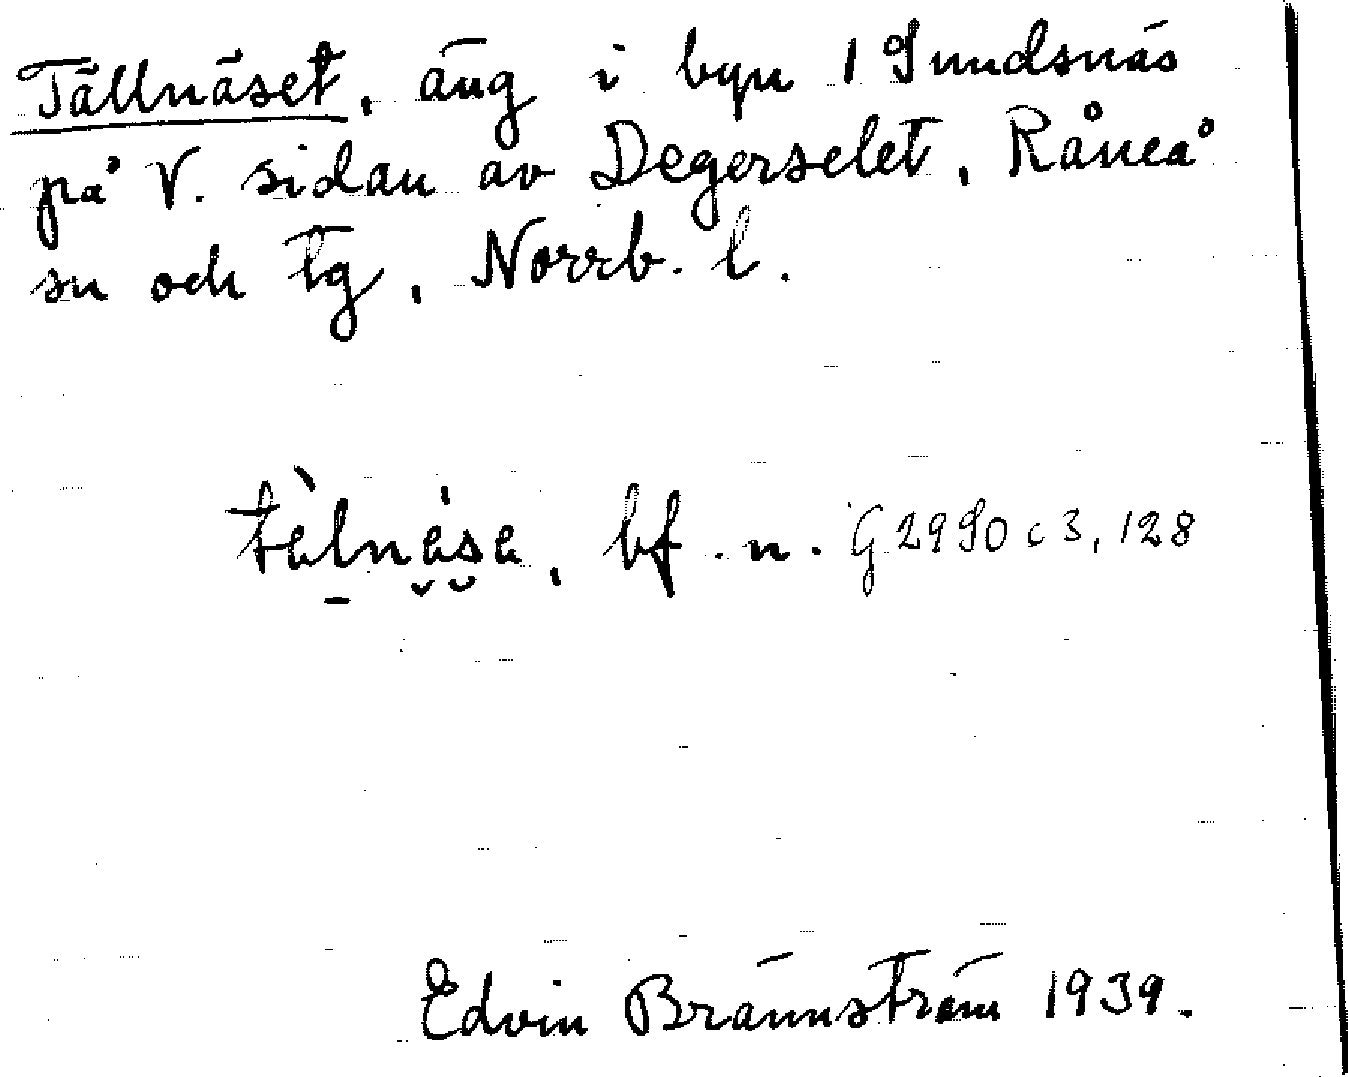 Tällnäset, äng i byn 1 Sundsnäs
på V. sidan av Degerselet, Råneå
sn och tg, Norrb. l.
bf. n. G 2990 c 3, 128
Edvin Brännström 1939.